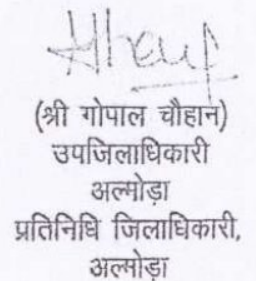 (श्री गोपाल चौहान)
उपजिलाधिकारी
अल्मोड़ा
प्रतिनिधि जिलाधिकारी,
अल्मोड़ा